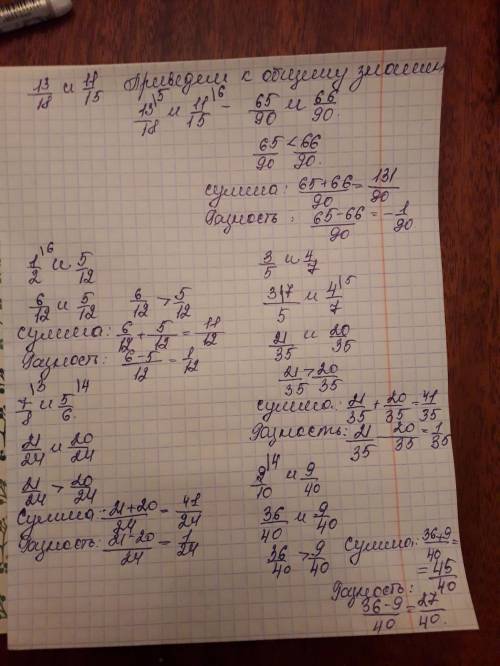 13/18 и 11/15 Приведем к общему знамен
13/18 \5 и 11/15 \6 - 65/90 и 66/90.
65/90 < 66/90.
сумма: 65+66/90 = 131/90
Разность: 65-66/90 = -1/90
1/2 \6 и 5/12
6/12 и 5/12 6/12 > 5/12
сумма: 6/12 + 5/12 = 11/12
Разность: 6-5/12 = 1/12
7/8 \3 и 5/6 \4
21/24 и 20/24
21/24 > 20/24
Сумма: 21+20/24 = 41/24
Разность: 21-20/24 = 1/24
3/5 и 4/7
3\7/5 и 4\5/7
21/35 и 20/35
21/35 > 20/35
сумма: 21/35 + 20/35 = 41/35
Разность: 21/35 - 20/35 = 1/35
9/10 \4 и 9/40
36/40 и 9/40
36/40 > 9/40
Сумма: 36+9/40 =
= 45/40
Разность:
36-9/40 = 27/40.